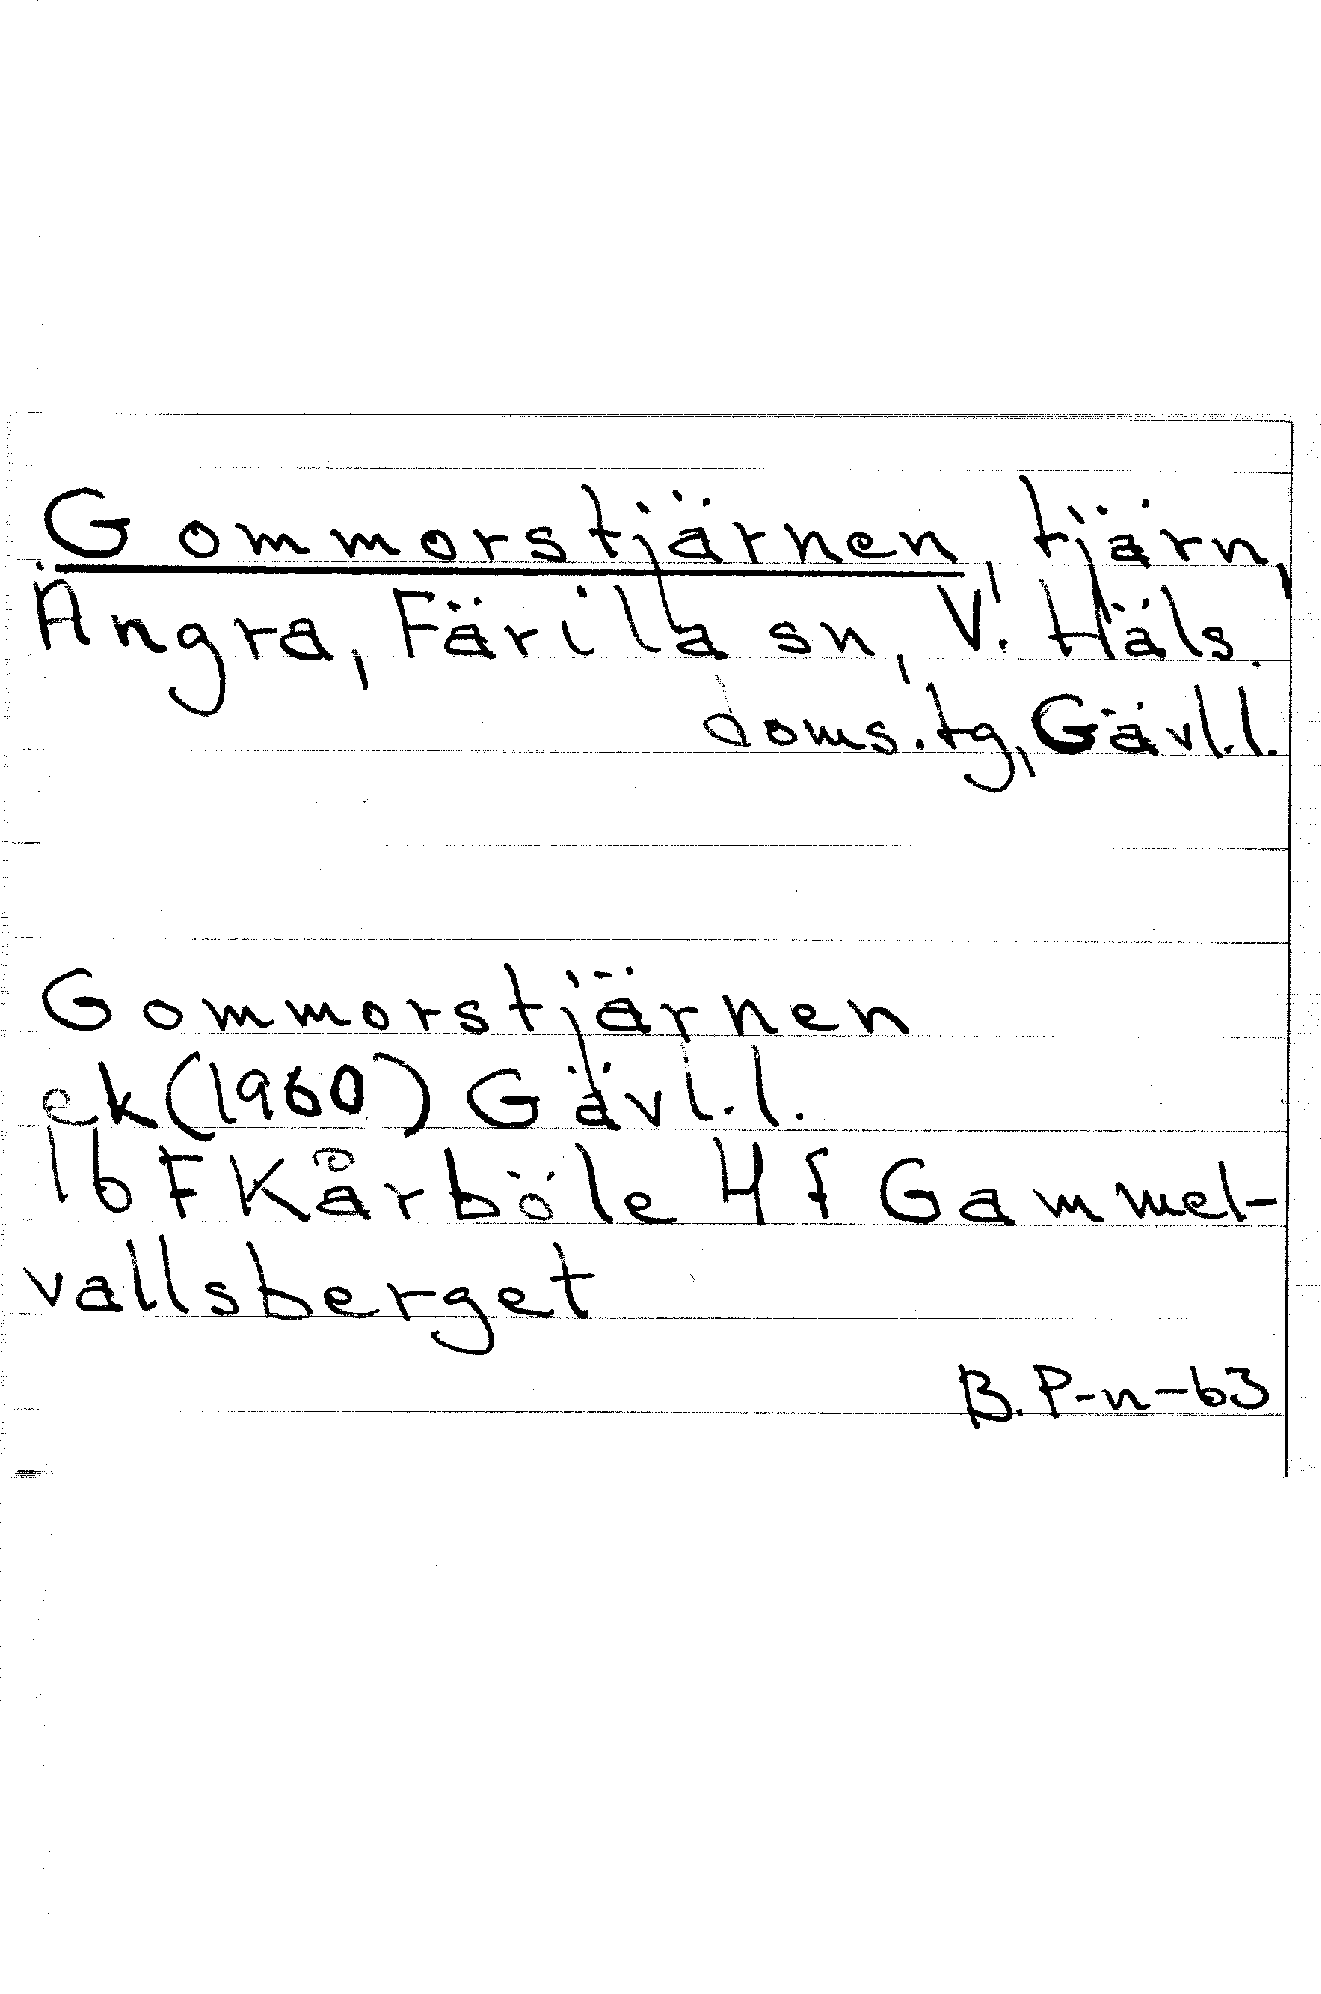 Gommorstjärnen, tjärn,
Ängra, Färila sn, V. Häls.
doms.tg, Gävl.l.
Gommorstjärnen
ek (1960) Gävl.l.
16 F Kårböle 4 f Gammel-
vallsberget
B. P-n-63